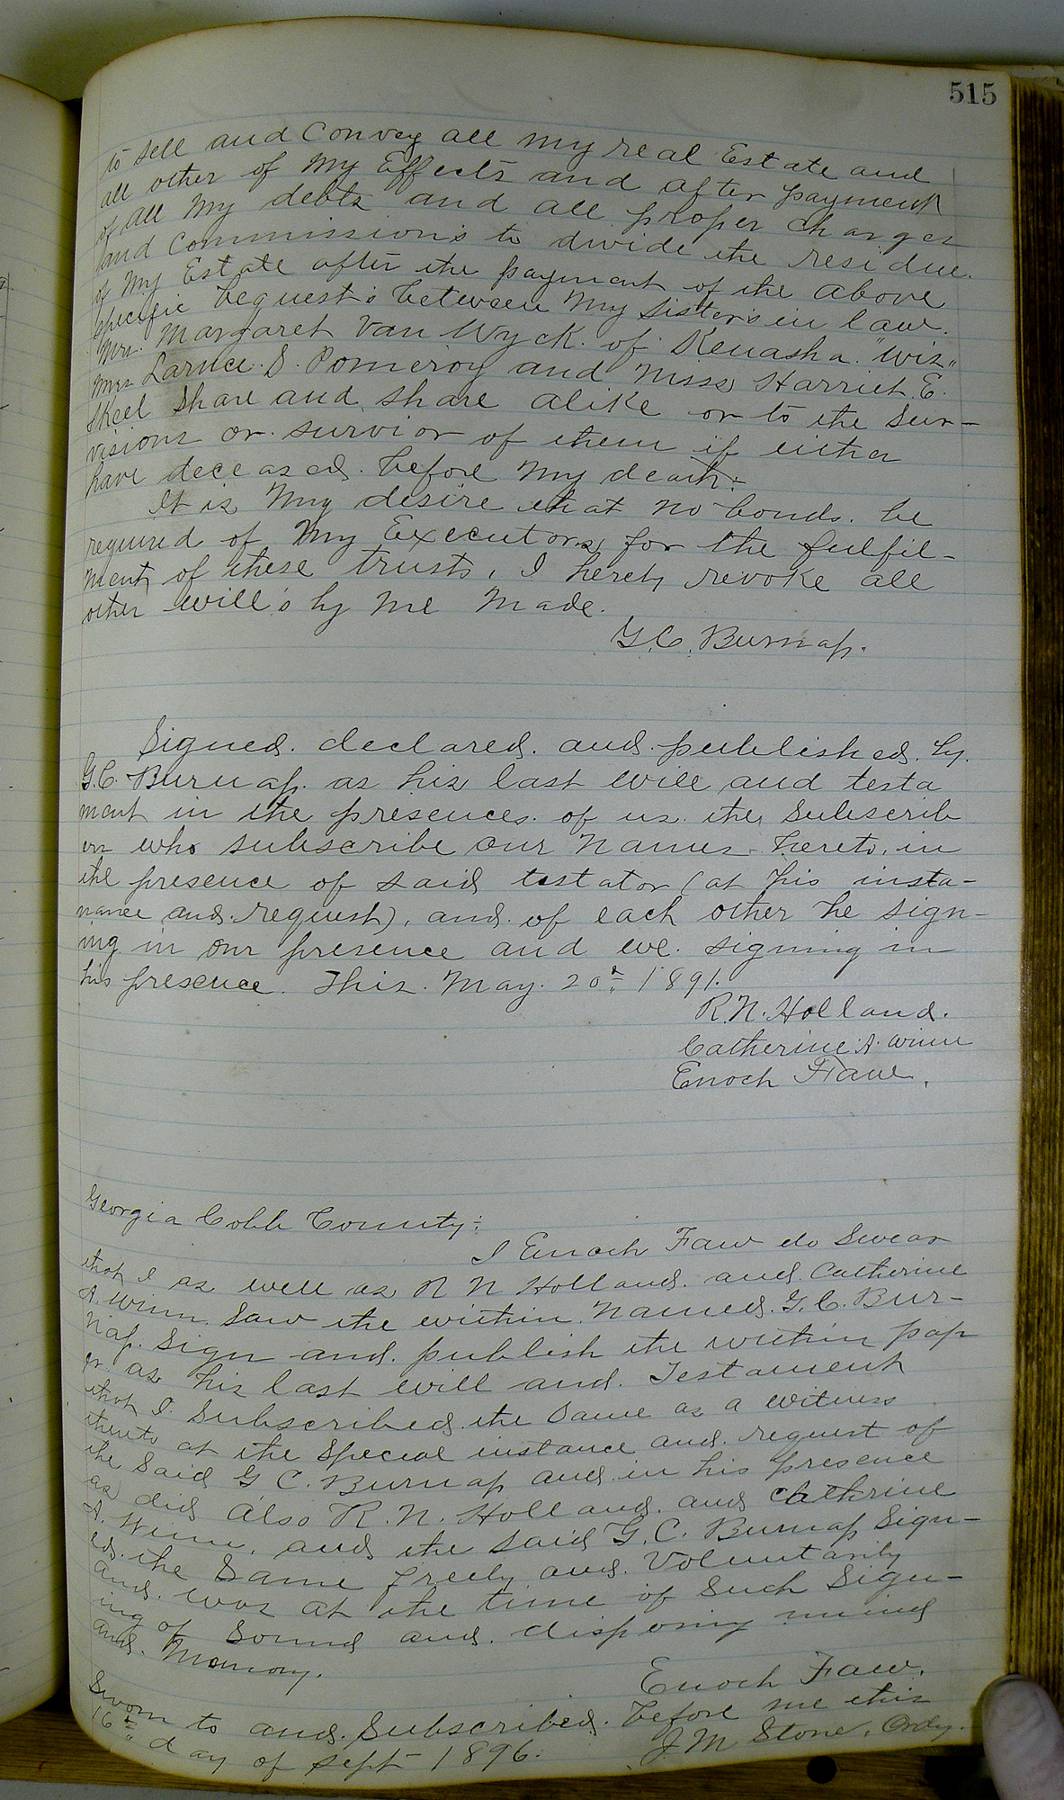 515
to sell and Convey all my real Estate and
all other of my Effects and after payment
of all my debts and all proper charges
and Commissions to divide the residue.
of My Estate after the payment of the above
specific bequests between my sisters in law.
Mrs. Margaret Van Wyck. of Kenasha. "Wis"
Mrs S. Pomeroy and Harriet. E.
Skeel Share and share alike or to the Sur-
visions or survior of them if either
have deceased. before my death.
It is my desire that no bonds. be
required of my Executors, for the fulfil-
ment of these trusts, I hereby revoke all
other will's by me made.
G. C. Burnap.
Signed. declared. and published. by.
G. C. Burnap. as his last will and testa
ment in the presences. of us. the, Subscrib
ers who subscribe our names hereto, in
the presence of said testator (at his insta-
nance and. request), and. of each other he sign-
ing in our presence and we. signing in
his presence. This. May. 20th 1891.
R. N. Holland.
Catherine. A. Winn
Enoch Faw.
Georgia Cobb County:
I Enoch Faw do Swear
that I as well as R N Holland. and. Catherine
A. Winn. Saw the within. Named. G. C. Bur-
nap. Sign and. publish the within pap
er as his last will and. Testament
that I Subscribed. the Same as a witness
thereto at the Special instance and. request of
the Said G C. Burnap and in his presence
as did also R. N. Holland. and Cathrine
A. Winn. and the said G. C. Burnap Sign-
ed. the Same freely and. Voluntarily
and. was at the time of Such Sign-
ing of Sound and. disposing mind
and. Memory.
Enoch Faw.
Sworn to and. Subscribed. before me this
16th day of Sept 1896.
J. M Stone, Ordy.